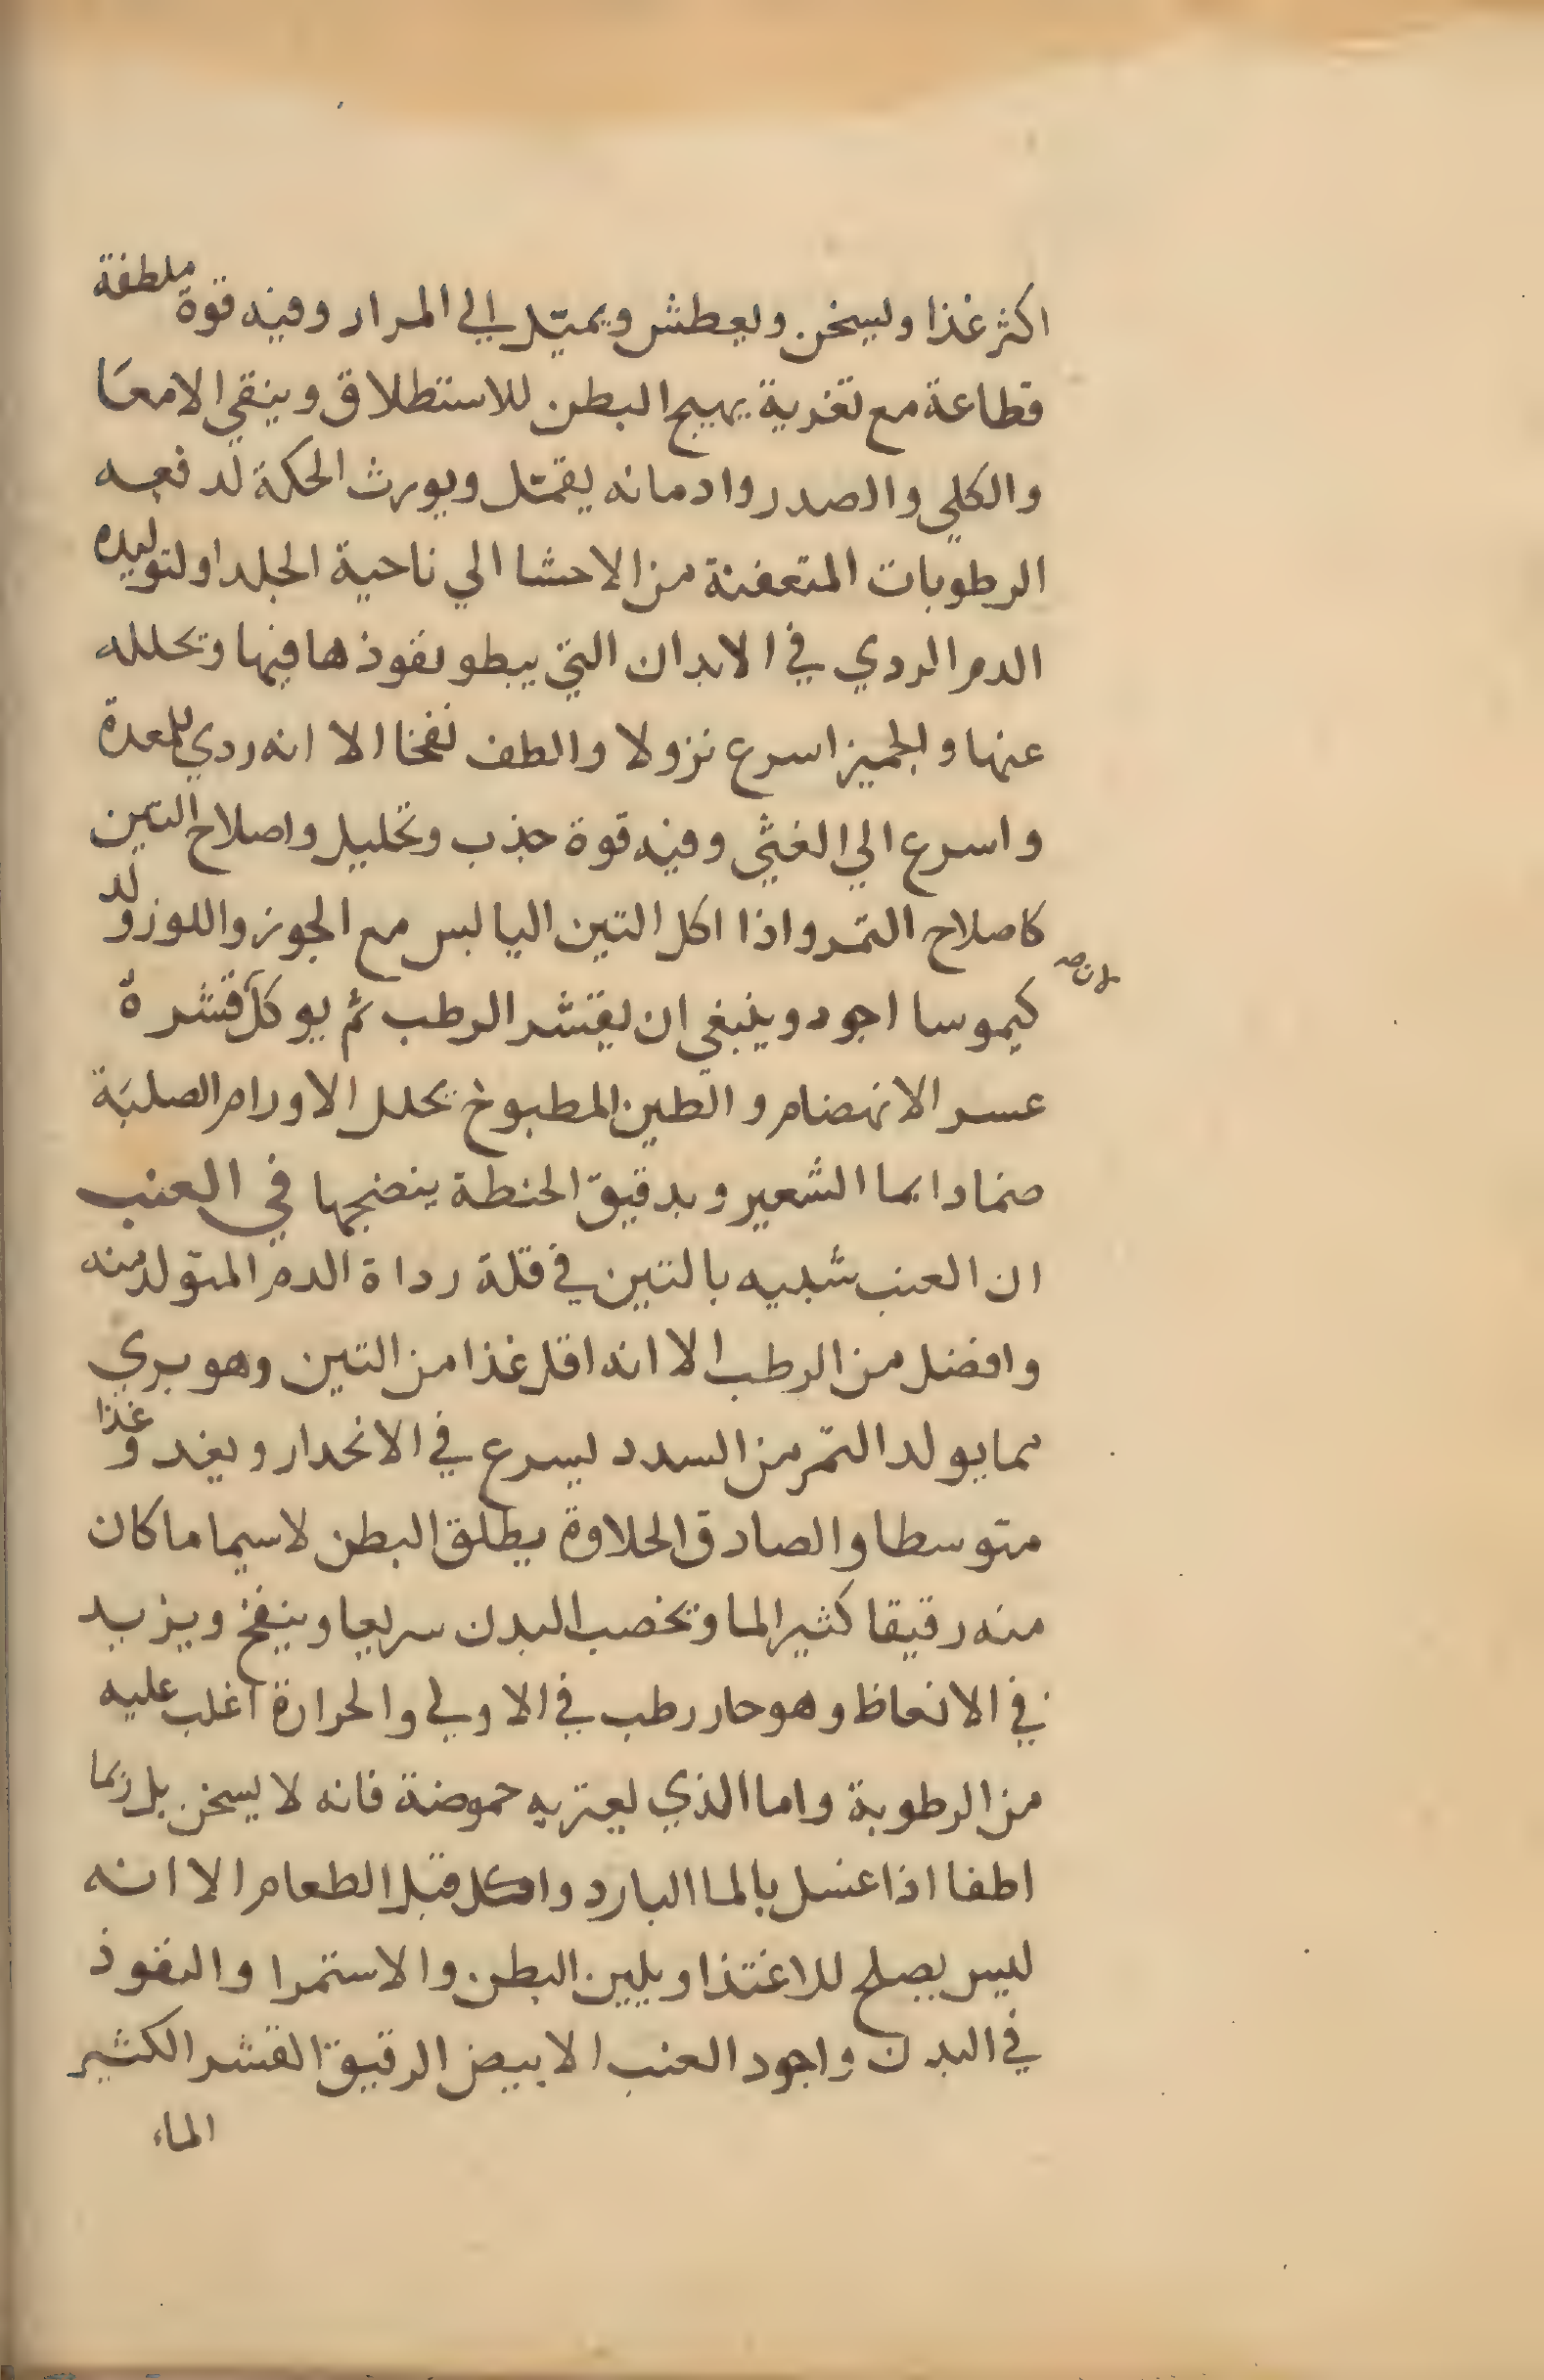 اكثر غذا ويسخن ويعطش ويميل الي المرار وفيه قوة ملطفة
قطاعة مع تغرية يهيج البطن للاستطلاق وينقي الامعا
والكلي والصدر وادمانه يقمل ويورث الحكة لدفعه
الرطوبات المتعفنة من الاحشا الي ناحية الجلد او لتوليده
الدم الردي في الابدان التي يبطو نفوذها فيها وتحلله
عنها والجميز اسرع نزولا والطف نفخا الا انه ردي للمعدة
واسرع الي الغثي وفيه قوة جذب وتحليل واصلاح التين
كاصلاح التمر واذا اكل التين اليابس مع الجوز واللوز ولد
لان صه
كيموسا اجود وينبغي ان يقشر الرطب ثم يوكل قشره
عسر الانهضام والطين المطبوخ يحلل الاورام الصلبة
ضمادا بما الشعير وبدقيق الحنطة ينضجها في العنب
ان العنب شبيه بالتين في قلة رداة الدم المتولد منه
وافضل من الرطب الا انه اقل غذا من التين وهو بري
مما يولد التمر من السدد ليسرع في الانحدار ويغدو غذا
متوسطا والصادق الحلاوة يطلق البطن لاسيما ما كان
منه رقيقا كثير الما وتخصب البدن سريعا وينفخ ويزيد
في الانعاظ وهو حار رطب في الاولي والحرارة اغلب عليه
من الرطوبة واما الذي يعتريه حموضة فانه لا يسخن بل ربما
اطفا اذا غسل بالما البارد واكل قبل الطعام الا انه
ليس يصلح للاغتذا ويلين البطن والاستمرا والنفوذ
في البدن واجود العنب الابيض الرقيق القشر الكثير
الماء